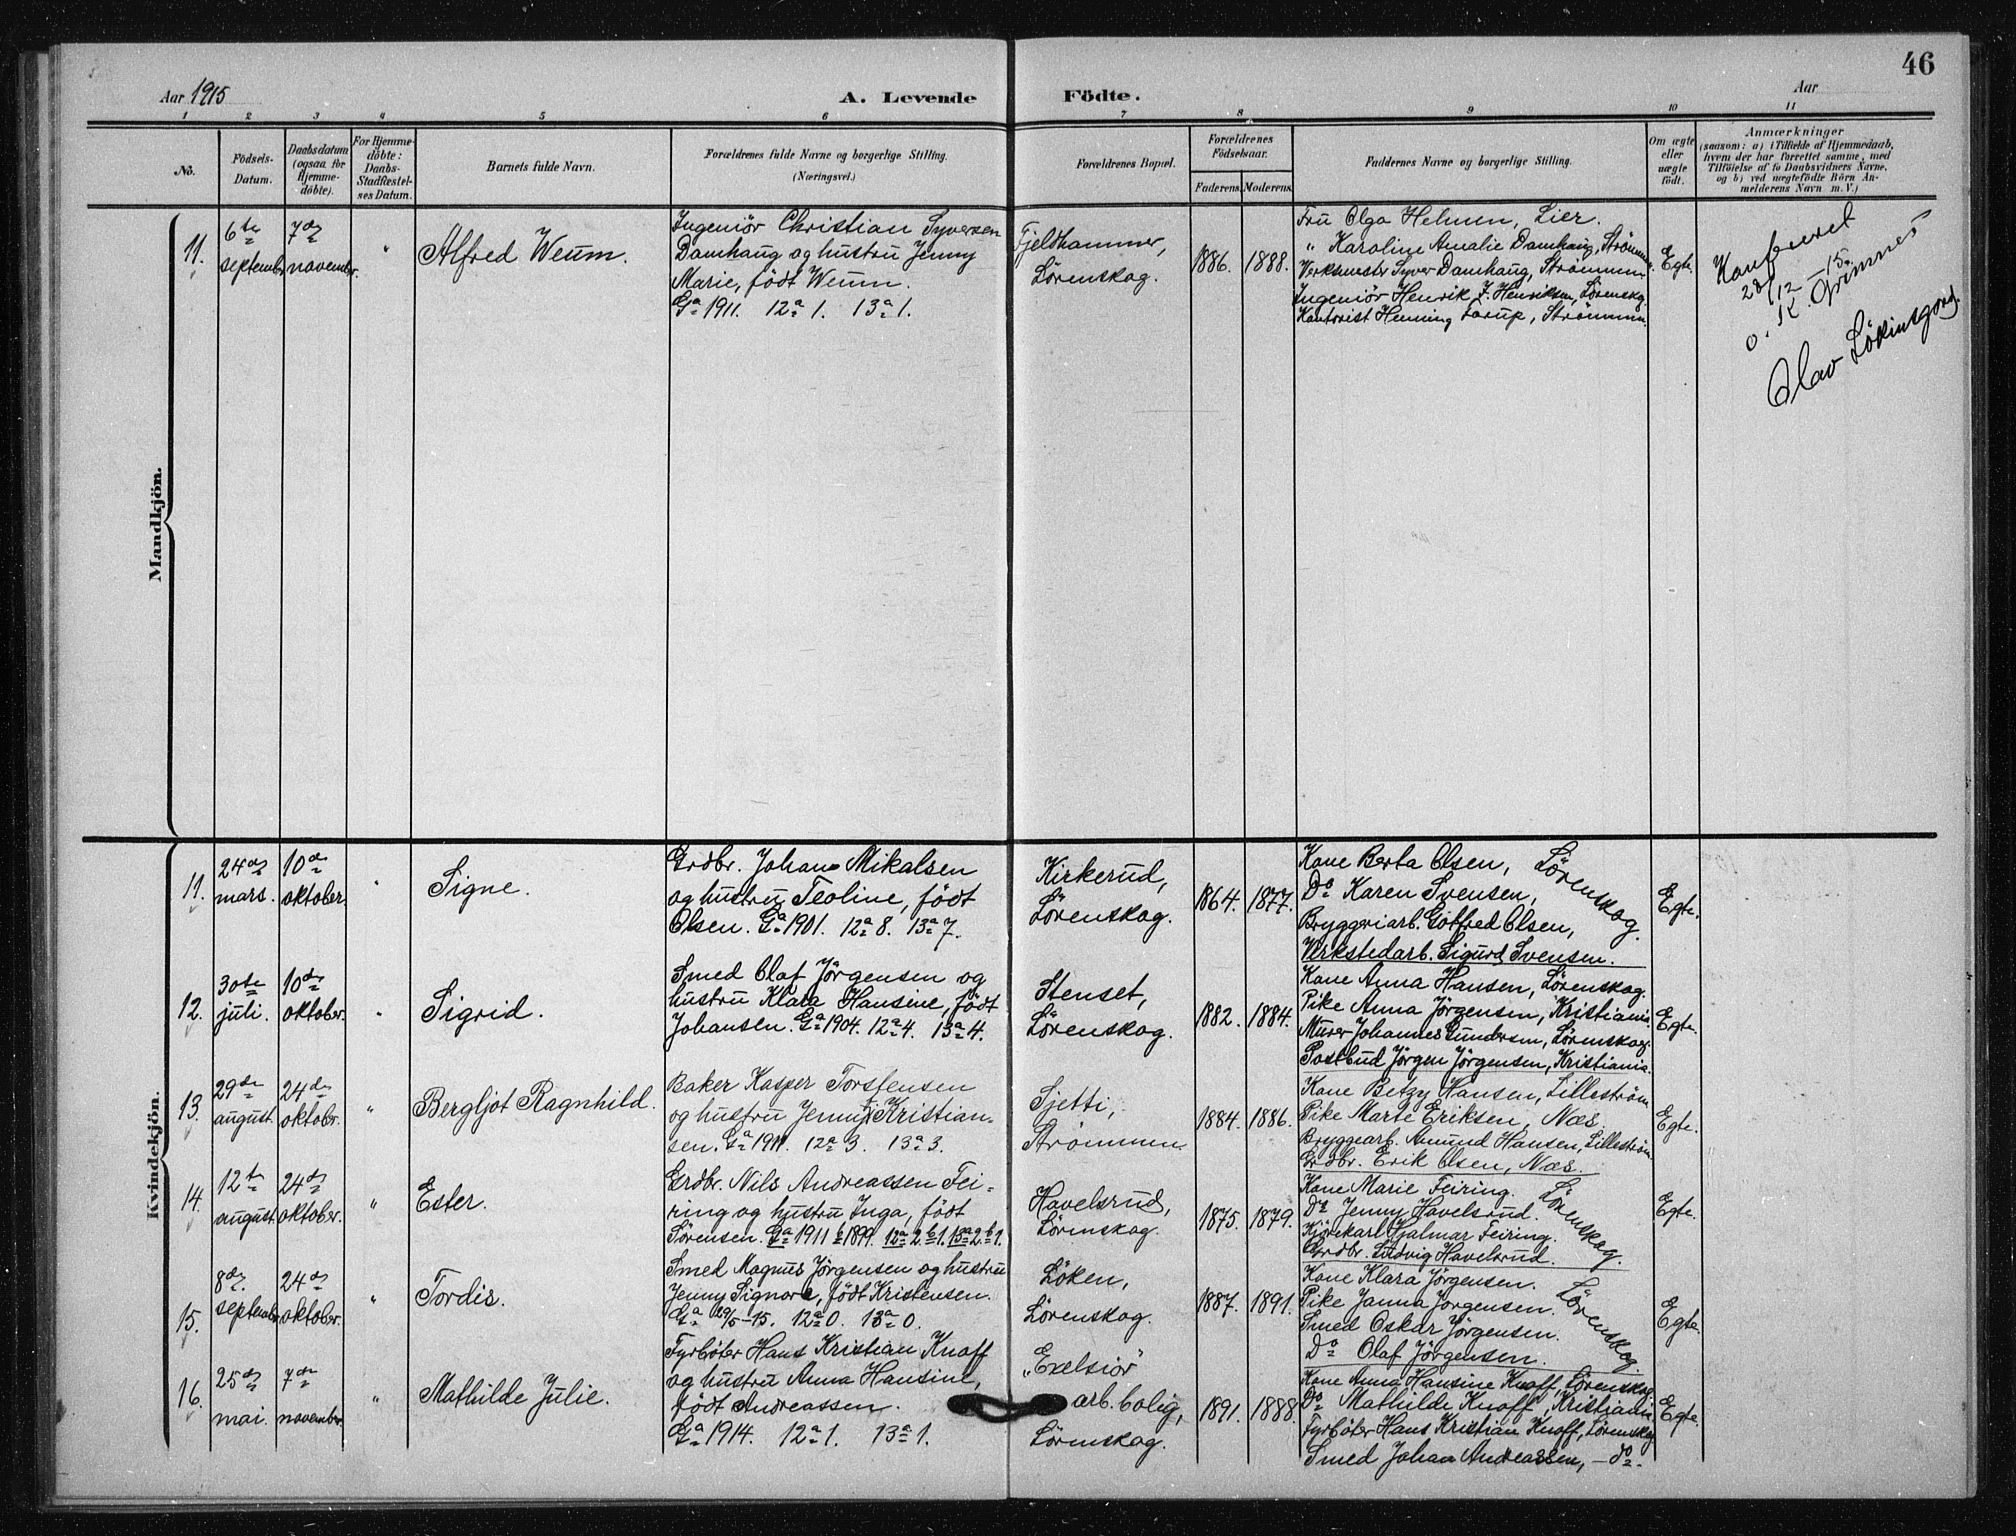 46
Aar 1915
A. Levende
Födte.
Aar
1 2 3 4 5 6 7 8 9 10 11
No.
Födsels-
Datum.
Daabsdatum
(ogsaa for
Hjemme-
döbte).
For Hjemme-
döbte:
Daabs-
Stadfæstel-
ses Datum.
Barnets fulde Navn.
Forældrenes fulde Navne og borgerlige Stilling.
(Næringsvei.)
Forældrenes Bopæl.
Forældrenes
Födselsaar.
Faderens. Moderens.
Faddernes Navne og borgerlige Stilling.
Om ægte
eller
uægte
födt.
Anmærkninger
(saasom: a) i Tilfælde af Hjemmedaab,
hvem der har forrettet samme, med
Tilföielse af to Daabsvidners Navne,
og b) ved uægtefödte Börn An-
melderens Navn m. V.)
Mandkjön.
11.
6te
septembr.
7de
novembr.
"
Alfred Weum.
Ingeniör Christian Syversen
Damhaug og hustru Jenny
Marie, födt Weum.
Ga 1911. 12a 1. 13a 1.
Fjeldhammer,
Lörenskog.
1886. 1888.
Fru Olga Helmen, Lier.
" Karoline Amalie Damhaug, Strömmen.
Verksmester Syver Damhaug, Strömmen.
Ingeniör Henrik J. Henriksen, Lörenskog.
Kontorist Henning Larup, Strömmen.
Egte.
28/12 - 15.
O. K. Grimnes
Olav
Kvindekjön.
11.
24de
mars.
10de
oktober.
"
Signe.
Grdbr. Johan Mikalsen
og hustru Teoline, födt
Olsen. Ga 1901. 12a 8. 13a 7.
Kirkerud,
Lörenskog.
1864. 1877.
Kone Berta Olsen,
Do Karen Svensen,
Bryggeriarb. Gotfred Olsen,
Verkstedarb. Sigurd Svensen.
Lörenskog.
Egte.
12.
30te
juli.
10de
oktober.
"
Sigrid.
Smed Olaf Jörgensen og
hustru Klara Hansine, födt
Johansen. Ga 1904. 12a 4. 13a 4.
Stenset,
Lörenskog.
1882. 1884.
Kone Anna Hansen, Lörenskog.
Pike Anna Jörgensen, Kristiania.
Murer Johannes Gundersen, Lörenskog.
Postbud Jörgen Jörgensen, Kristiania.
Egte.
13.
29de
august.
24de
oktobr.
"
Bergljot Ragnhild.
Baker Kasper Torstensen
og hustru Jenny, f. Kristian-
sen. Ga 1911. 12a 3. 13a 3.
Sjetti,
Strömmen.
1884. 1886.
Kone Betzy Hansen, Lilleström
Pike Marte Eriksen, Næs.
Bryggearb. Amund Hansen, Lilleström
Grdbr. Erik Olsen, Næs.
Egte.
14.
12te
august.
24de
oktober.
"
Ester.
Grdbr. Nils Andreassen Fei-
ring og hustru Inga, födt
Sörensen. Ga 1911 b 1899. 12a 2. b 1. 13a 2. b 1.
Havelsrud,
Lörenskog.
1875. 1879.
Kone Marie Feiring.
Do Jenny Havelsrud.
Kjörekarl Hjalmar Feiring.
Grdbr. Ludvig Havelsrud.
Lörenskog.
Egte.
15.
8de
septembr.
24de
oktober.
"
Tordis.
Smed Magnus Jörgensen og hustru
Jenny Signore, födt Kristensen.
Ga 29/5-15. 12a 0. 13a 0.
Löken,
Lörenskog.
1887. 1891.
Kone Klara Jörgensen.
Pike Janna Jörgensen.
Smed Oskar Jörgensen.
Do Olaf Jörgensen.
Lörenskog.
Egte.
16.
25de
mai.
7de
november.
"
Mathilde Julie.
Fyrböter Hans Kristian Knoff
og hustru Anna Hansine,
födt Andreassen.
Ga 1914. 12a 1. 13a 1.
"Exelsiör"
arb. bolig,
Lörenskog.
1891. 1888.
Kone Anna Hansine Knoff, Lörenskog.
Do Mathilde Knoff, Kristiania.
Fyrböter Hans Kristian Knoff, Lörenskog
Smed Johan Andreassen, - do -
Egte.